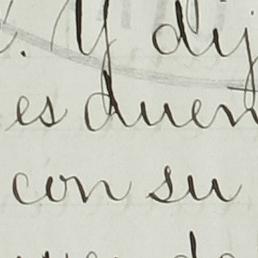 . Y dij
es duen
con su